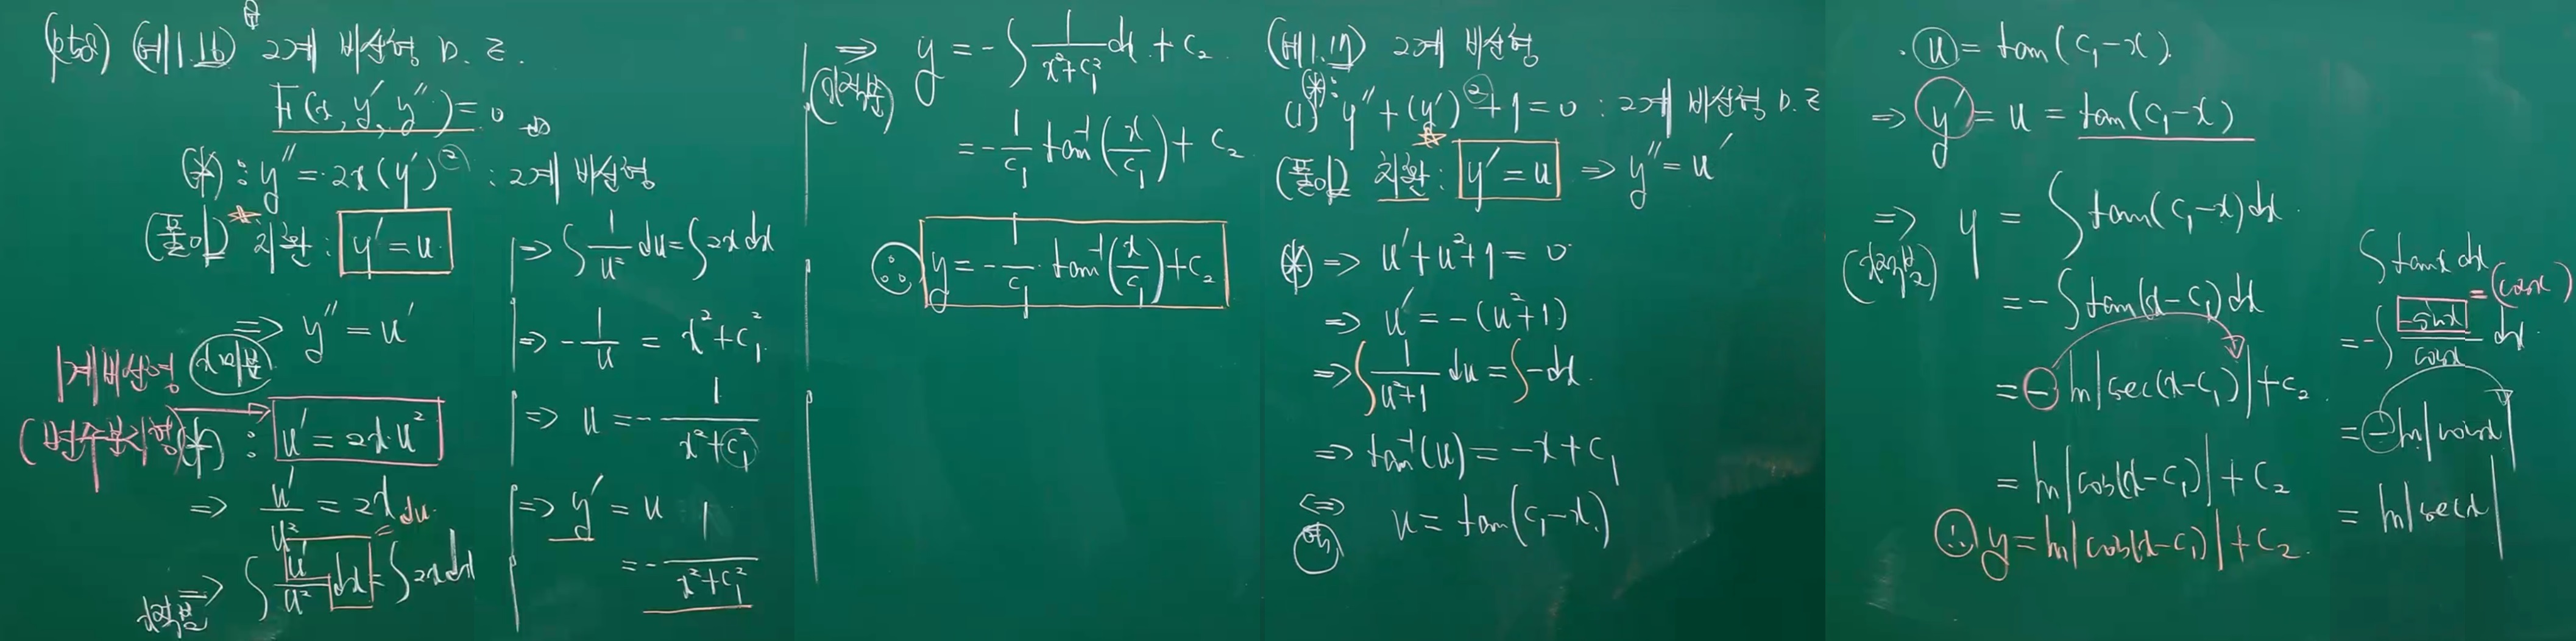 (p+8) (예1.16) 2계 비선형 D.E.
F(x, y', y'') = 0
(*) : y'' = 2x(y')² : 2계 비선형
(풀이) 치환 : y' = u
=> y'' = u'
1계 비선형
(변수분리형) (*) : u' = 2x·u²
=> u'/u² = 2x
=> ∫ u'/u² dx = ∫ 2x dx
du
=> ∫ 1/u² du = ∫ 2x dx
=> -1/u = x² + c₁²
=> u = - 1/(x²+c₁²)
=> y' = u
= - 1/(x²+c₁²)
=> y = -∫ 1/(x²+c₁²) dx + c₂
(적분)
= - 1/c₁ tan⁻¹(x/c₁) + c₂
∴ y = - 1/c₁ · tan⁻¹(x/c₁) + c₂
(예1.17) 2계 비선형
(*):
(1) y'' + (y')² + 1 = 0 : 2계 비선형 D.E
(풀이) 치환 : y' = u => y'' = u'
(*) => u' + u² + 1 = 0
=> u' = -(u²+1)
=> ∫ 1/(u²+1) du = ∫ -dx
=> tan⁻¹(u) = -x + c₁
<=> u = tan(c₁-x)
· u = tan(c₁-x)
=> y' = u = tan(c₁-x)
=> y = ∫ tan(c₁-x) dx
(적분)
= -∫ tan(x-c₁) dx
= - ln|sec(x-c₁)| + c₂
= ln|cos(x-c₁)| + c₂
∴ y = ln|cos(x-c₁)| + c₂
∫ tanx dx
= -∫ -sinx/cosx dx
= (cosx)'
= -ln|cosx|
= ln|secx|